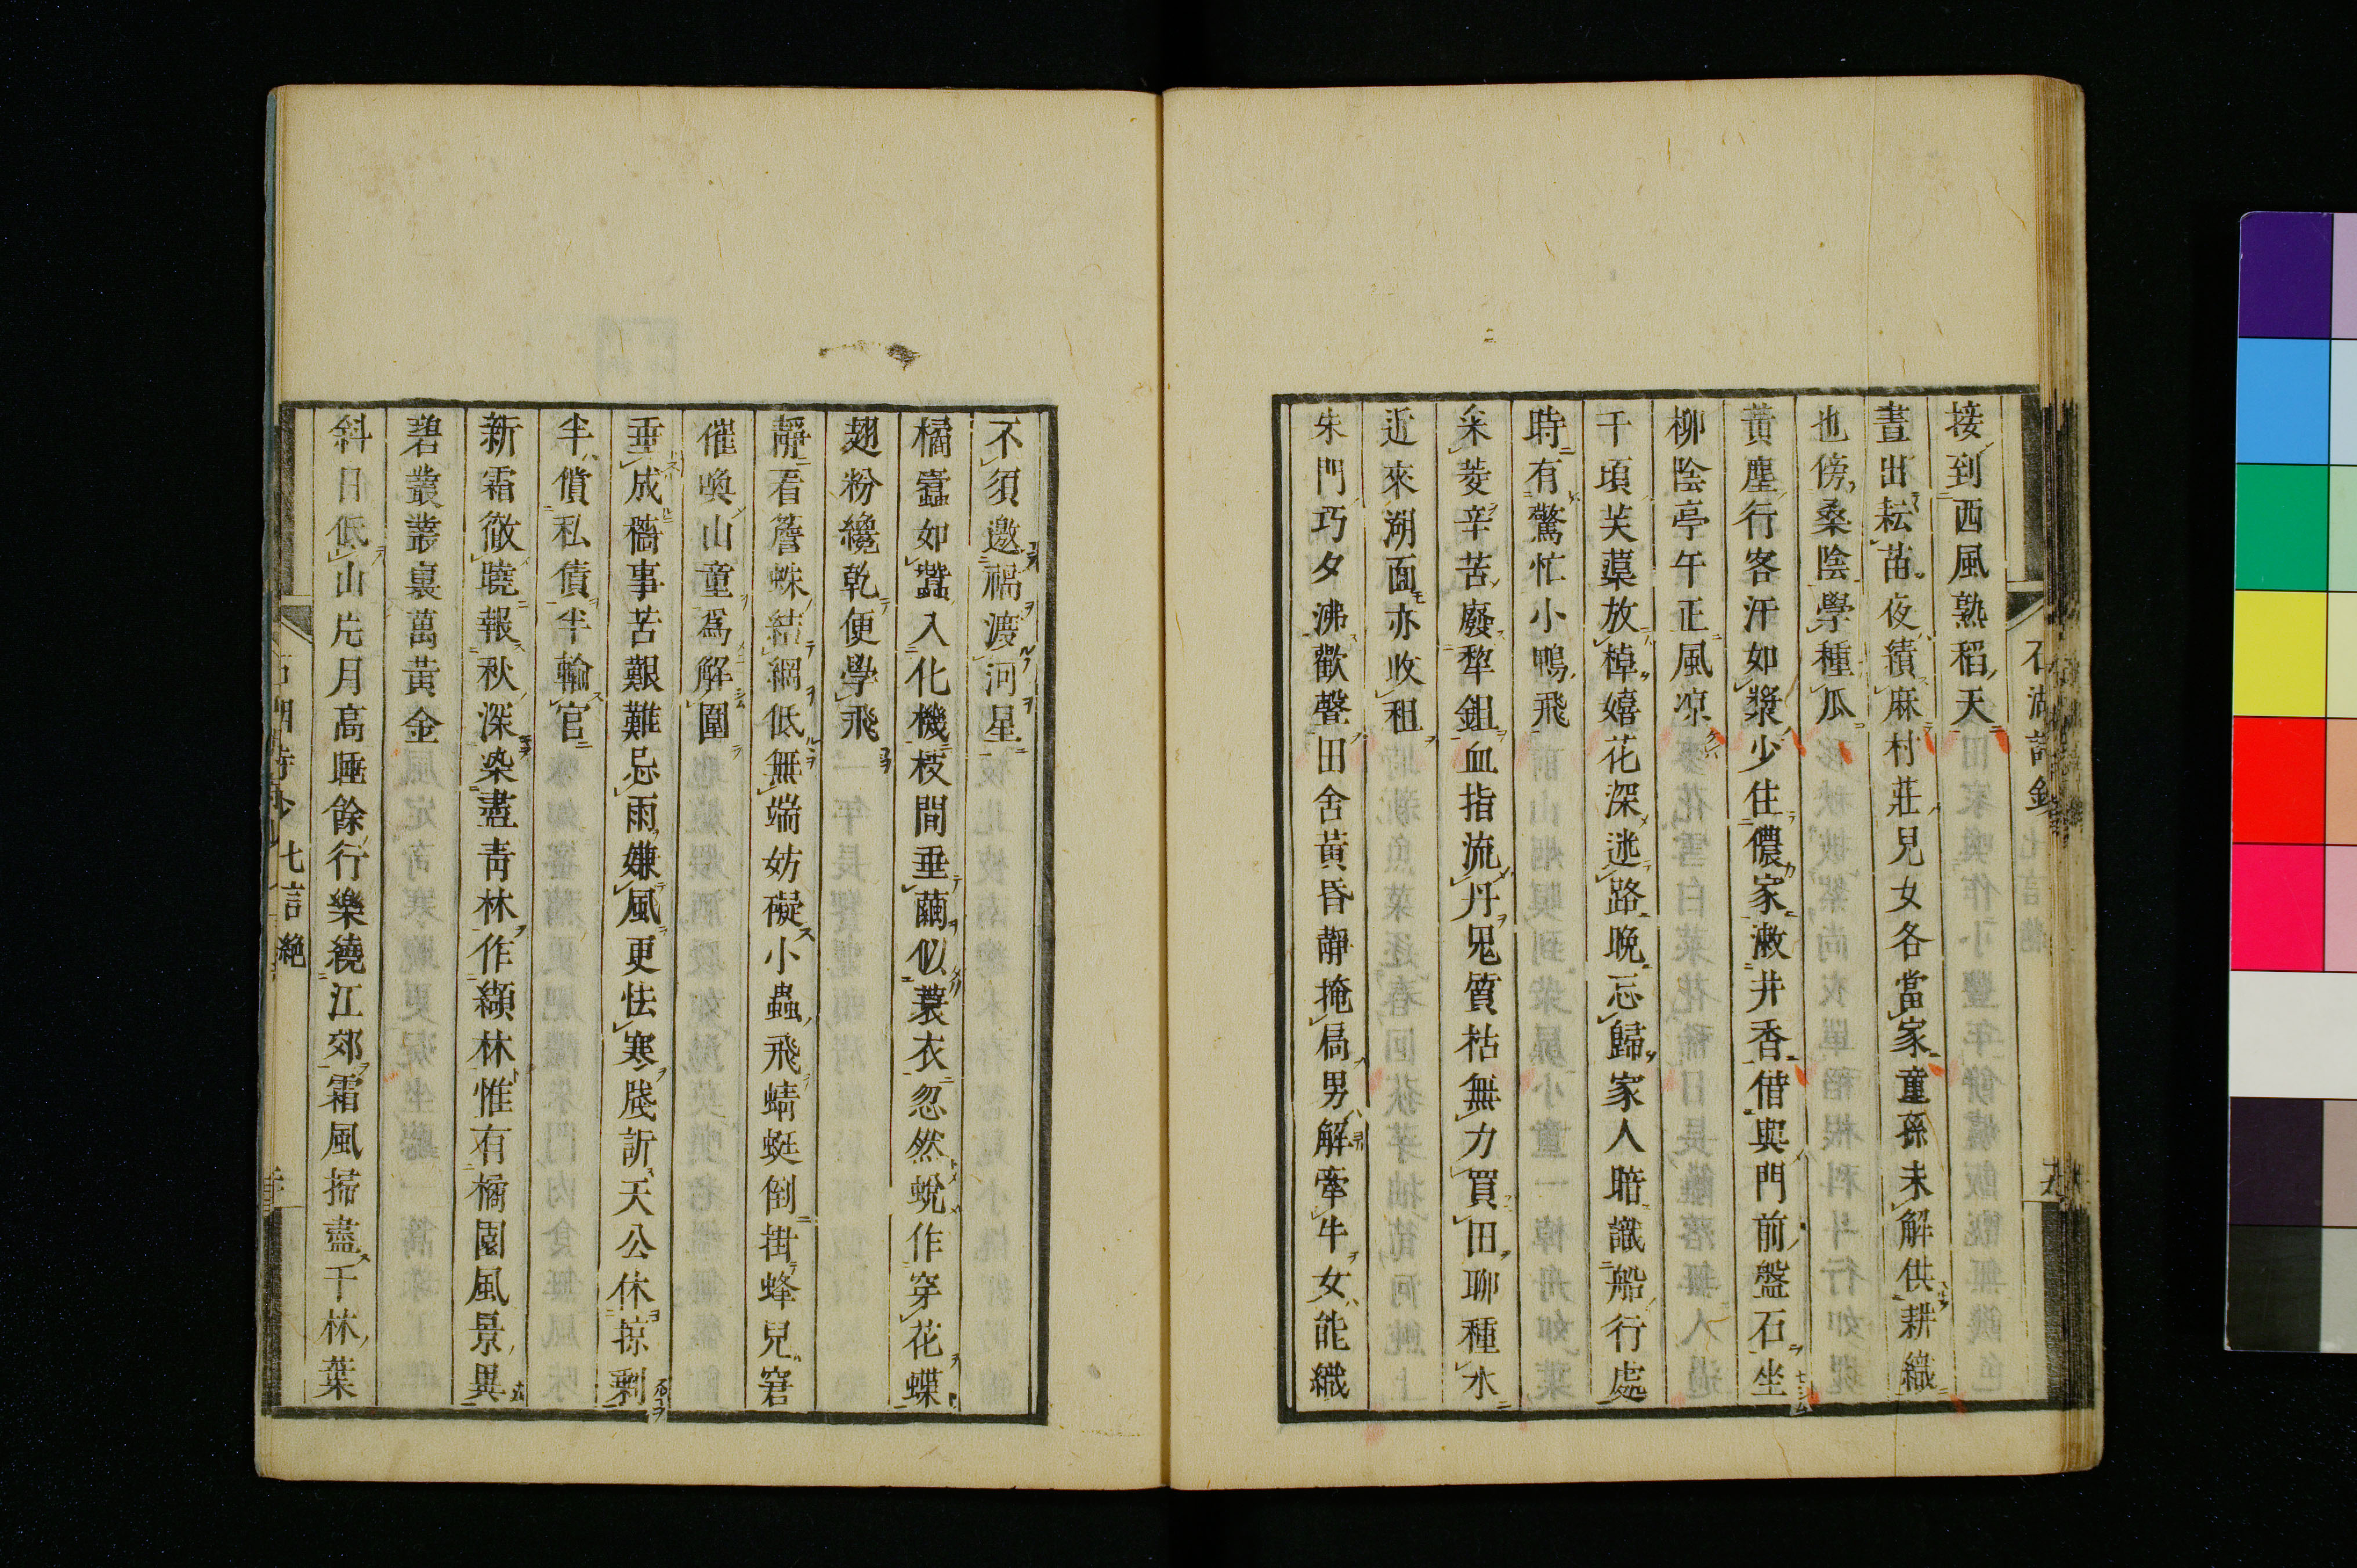 接到西風熟稻天
晝出耘苗夜績麻村莊兒女各當家童孫未解供耕織
也傍桑陰學種瓜
黃塵行客汗如漿少住儂家漱井香借與門前盤石坐
柳陰亭午正風凉
千頃芙蕖放棹嬉花深迷路晚忘歸家人暗識船行處
時有驚忙小鴨飛
采菱辛苦廢犂鉏血指流丹鬼質枯無力買田聊種水
近來湖面亦收租
朱門巧夕沸歡聲田舍黃昏靜掩扃男解牽牛女能織
不須邀福渡河星
橘蠹如蠶入化機枝間垂繭似蓑衣忽然蛻作穿花蝶
翅粉纔乾便學飛
靜看簷蛛結網低無端妨礙小蟲飛蜻蜓倒掛蜂兒窘
催喚山童爲解圍
垂成穡事苦艱難忌雨嫌風更怯寒牋訴天公休掠剩
半償私債半輸官
新霜徹曉報秋深染盡靑林作纈林惟有橘園風景異
碧叢叢裏萬黃金
斜日低山片月高睡餘行樂繞江郊霜風掃盡千林葉
七言絕